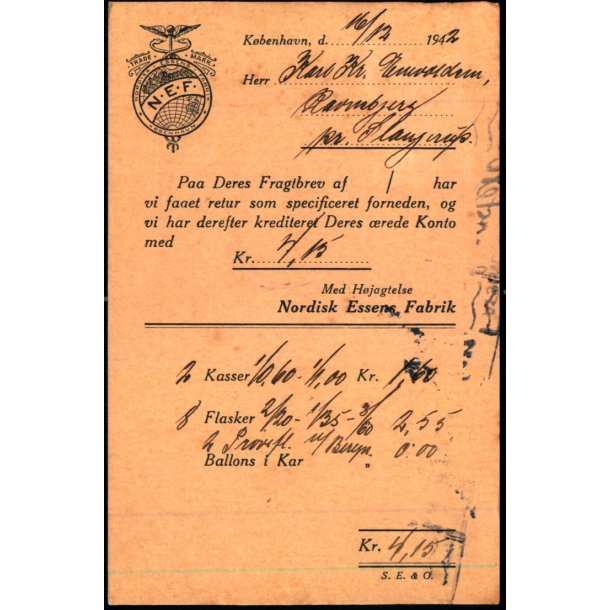 TRADE MARK
NORDISK ESSENS FABRIK
N.E.F.
KØBENHAVN
København, d. 16/12 1942
Herr Karl Kr.
pr. Slangerup.
Paa Deres Fragtbrev af 1 har
vi faaet retur som specificeret forneden, og
vi har derefter krediteret Deres ærede Konto
med
Kr. 4,15
Med Højagtelse
Nordisk Essens Fabrik
2 Kasser 1/0,60 - 1/1,00 Kr. 1,60
8 Flasker 2/20 - 1/35 - 3/60 2,55
2 Prøvefl. 0.00
Ballons i Kar "
Kr. 4,15
S. E. & O.